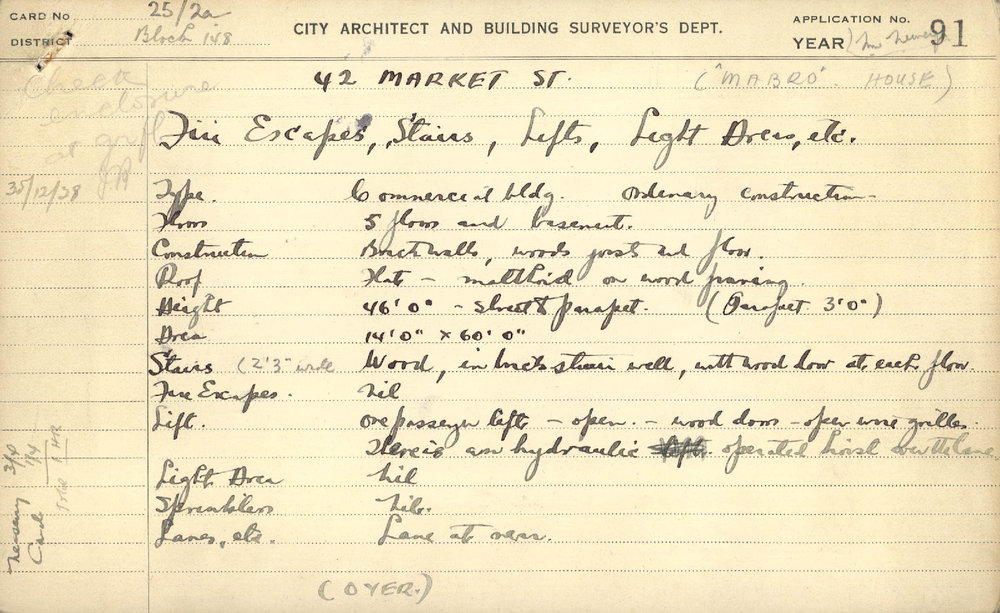 CARD No 25/2a
CITY ARCHITECT AND BUILDING SURVEYOR'S DEPT.
APPLICATION No. 91
DISTRICT Block 148
YEAR
42 MARKET ST. ("MABRO" HOUSE)
Check
enclosure
at
Fire Escapes, Stairs, Lifts, Light Areas, etc.
/12/38
Type. Commercial bldg. Ordinary construction
Floors 5 floors and basement.
Construction Brick walls, woods joist and floor.
Roof Flat - malthoid on wood
Height 46'0" - Street to parapet. (Parapet 3'0")
Area 14'0" x 60'0"
Stairs (2'3" wide Wood, in brick stair well, with wood door at each floor.
Fire Escapes. Nil
Lift. One passenger lift - open. - wood doors - open wire grilles.
There is an hydraulic operated hoist over the lane
Light Area Nil
Sprinklers Nil.
Lanes, etc. Lane at rear.
(OVER.)
3/4
1/4
1 HR
Card